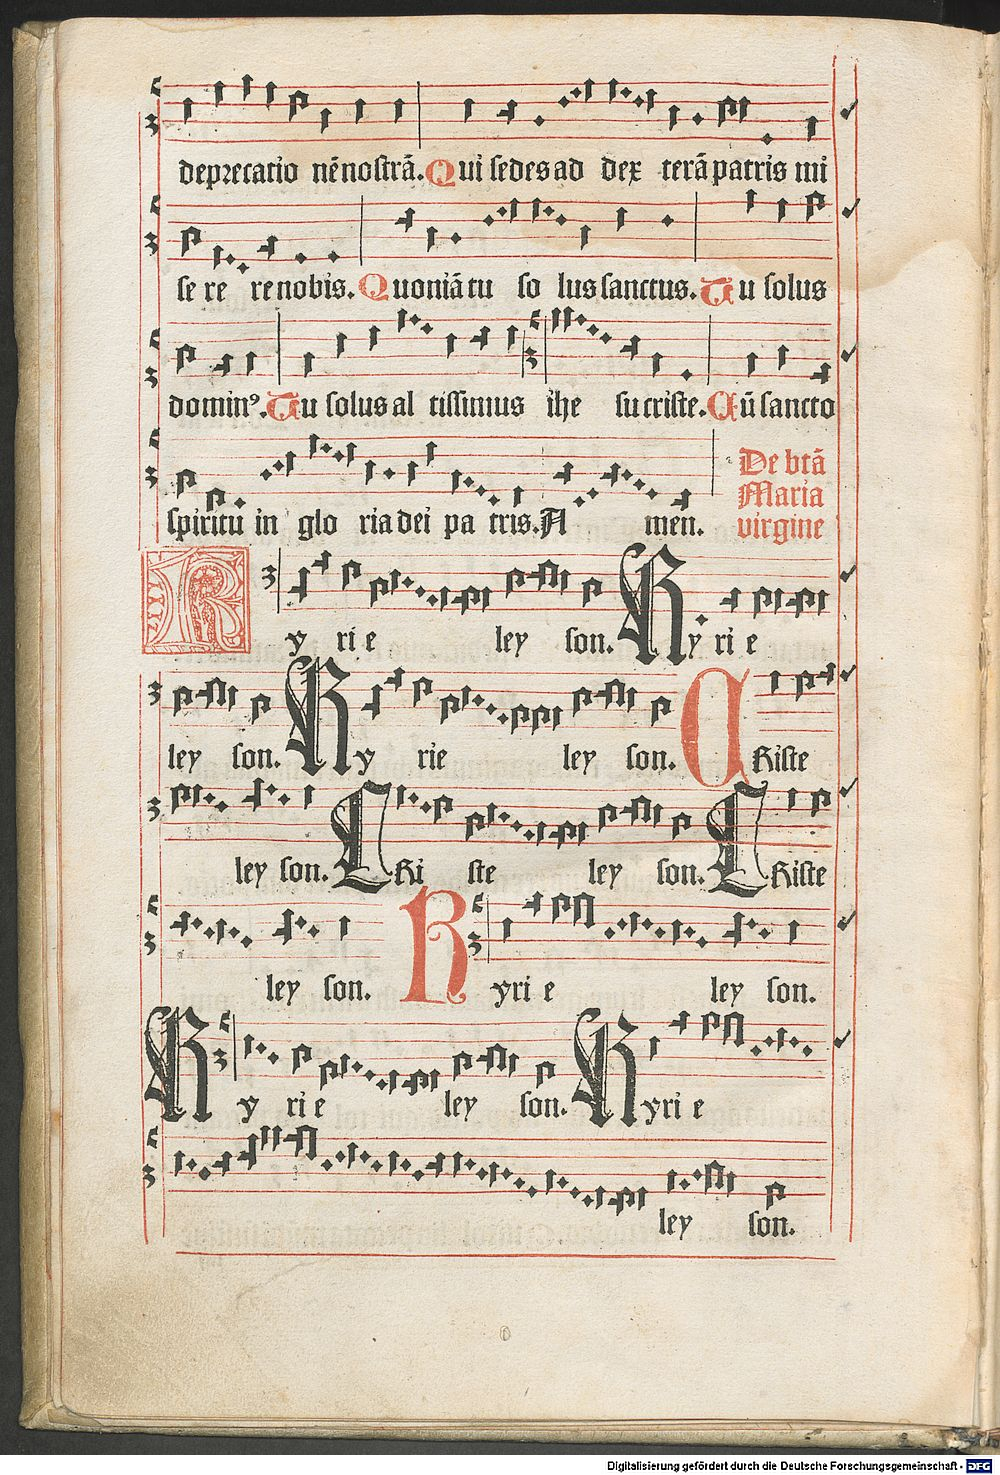 deprecatio nē nostrā. Qui sedes ad dex terā patris mi
se re re nobis. Quoniā tu so lus sanctus. Tu solus
dominꝰ. Tu solus al tissimus ihe su criste. Cū sancto
spiritu in glo ria dei pa tris. A men.
De btā
Maria
virgine
Ky ri e ley son. Ky ri e
ley son. Ky rie ley son. Christe
ley son. Chri ste ley son. Christe
ley son. Kyri e ley son.
Ky ri e ley son. Kyri e
ley son.
Digitalisierung gefördert durch die Deutsche Forschungsgemeinschaft - DFG